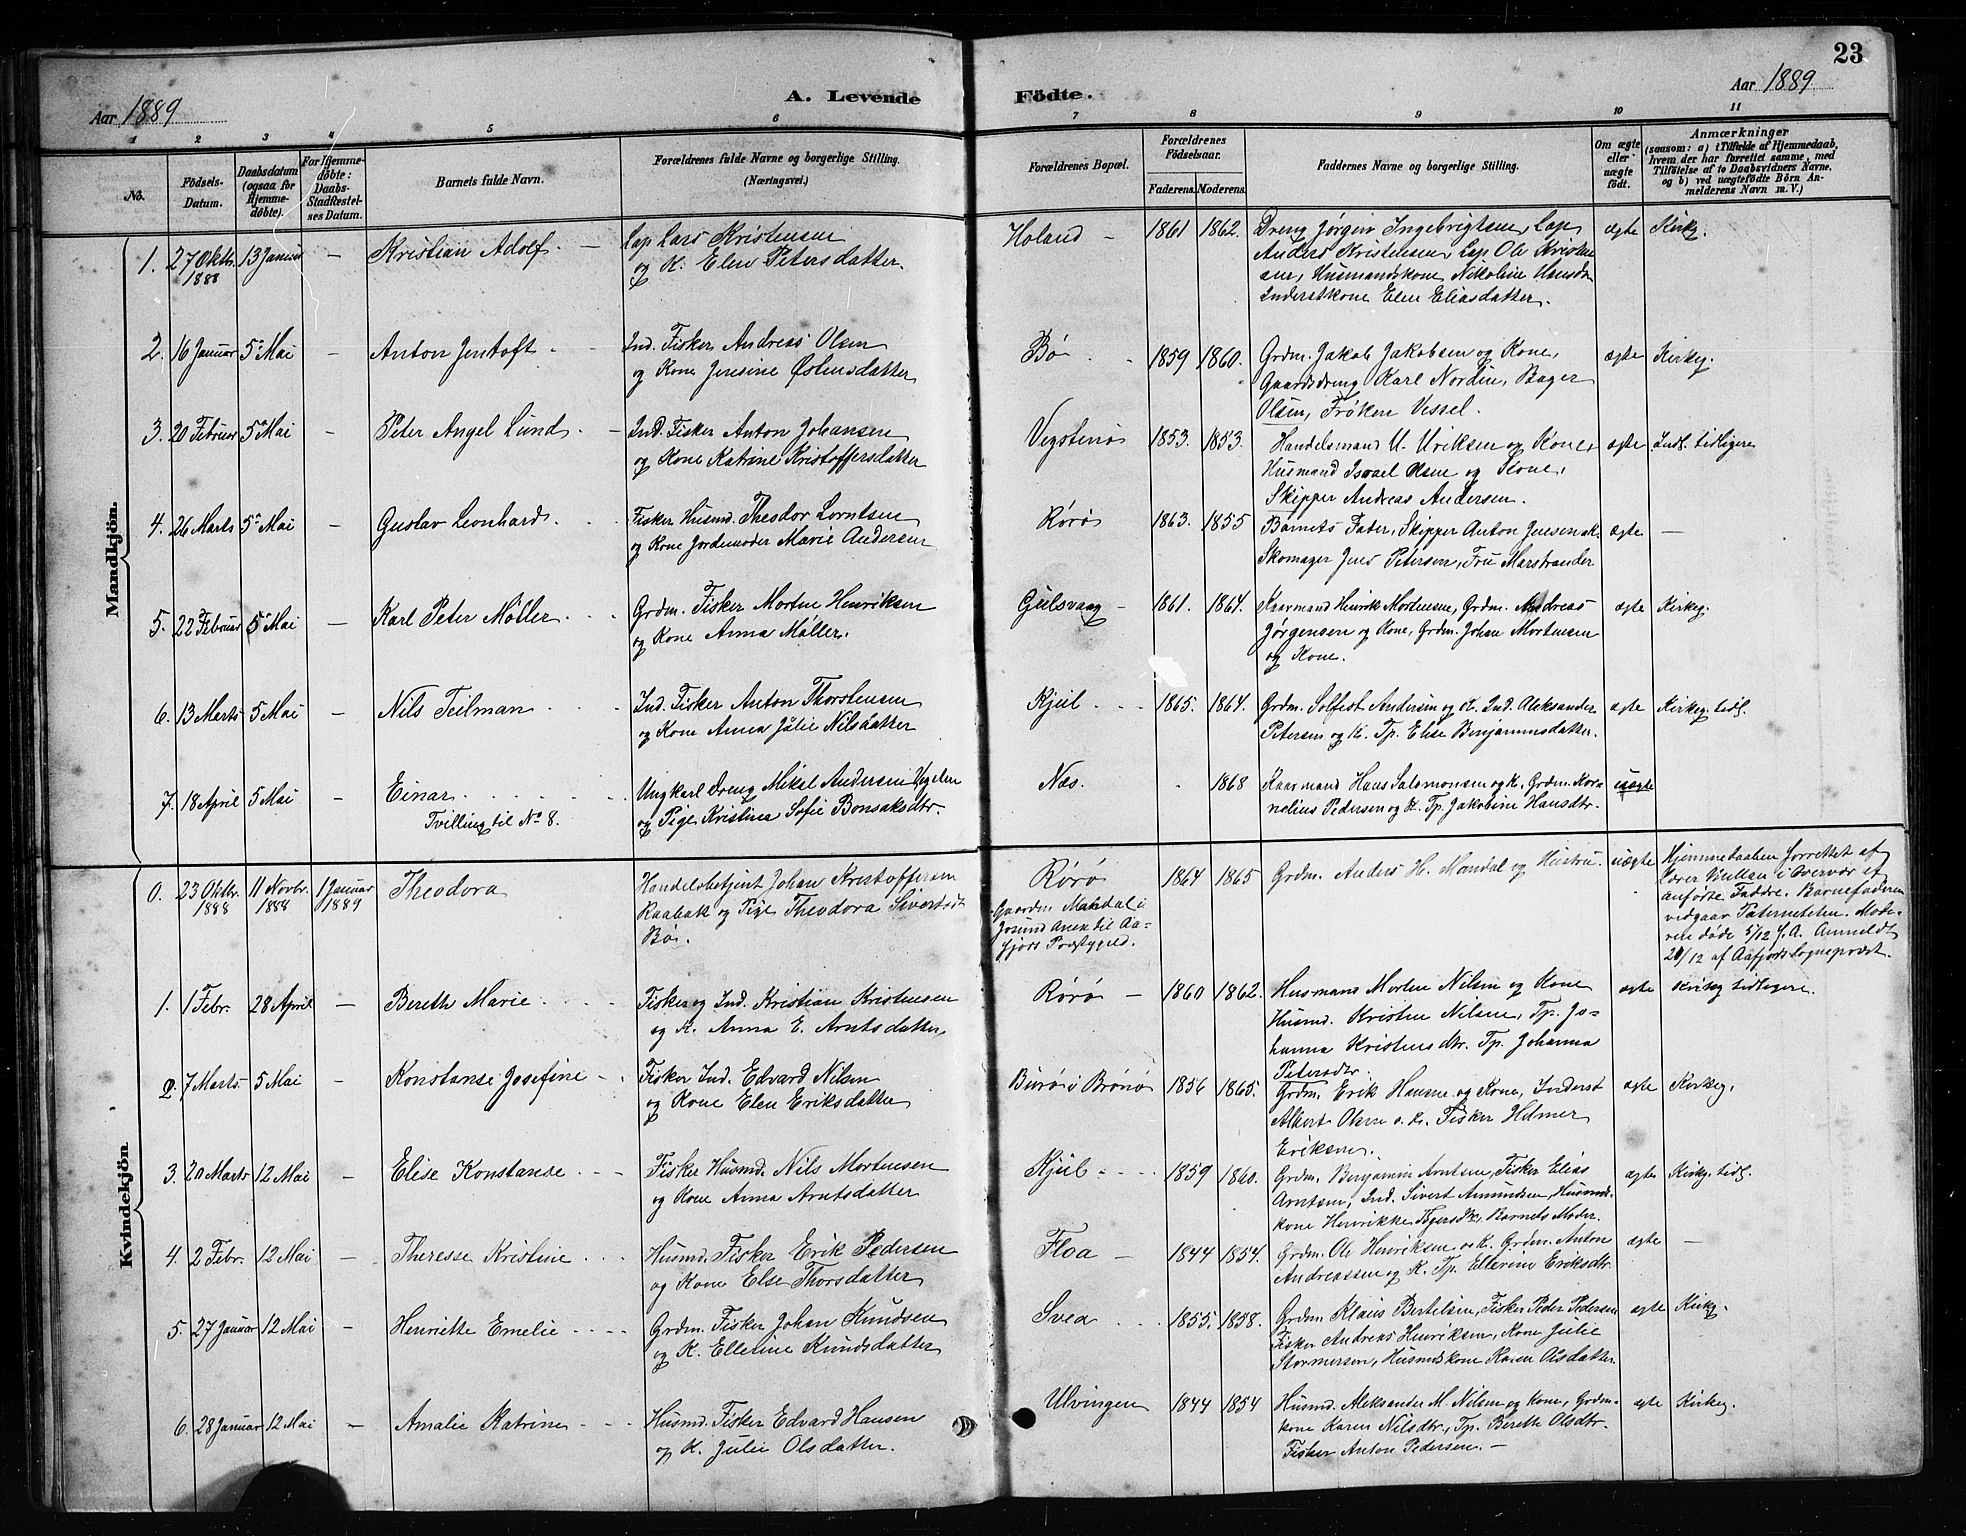 23
Aar 1889
A. Levende Födte.
Aar 1889
1 2 3 4 5 6 7 8 9 10 11
No.
Födsels-Datum.
Daabsdatum (ogsaa for Hjemmedöbte).
For Hjemmedöbte: Daabs-Stadfæstelses Datum.
Barnets fulde Navn.
Forældrenes fulde Navne og borgerlige Stilling. (Næringsvei.)
Forældrenes Bopæl.
Forældrenes Födselsaar.
Faderens. Moderens.
Faddernes Navne og borgerlige Stilling.
Om ægte eller uægte födt.
Anmærkninger (saasom: a) i Tilfælde af Hjemmedaab, hvem der har forrettet samme, med Tilföielse af to Daabsvidners Navne. og b) ved uægtefödte Börn Anmelderens Navn m. V.)
Mandkjön.
1. 27 Oktbr. 1888 13 Januar — Kristian Adolf. — Lap Lars Kristensen
og K. Elen Petersdatter. Holand — 1861 1862. Dreng Jørgen Ingebrigtsen, Lap
Anders Kristensen, Lap Ole Kristen
sen, Husmandskone Nikoline Hansdr
Inderstkone Elen Eliasdatter. ægte Kirkg.
2. 16 Januar 5 Mai — Anton Jentoft Ind. Fisker Andreas Olsen
og Kone Jensine Østensdatter Bø 1859 1860. Grdm. Jakob Jakobsen og Kone,
Gaardsdreng Karl Nordin, Bager
Olsen, Frøken Vessel. ægte Kirkeg.
3. 20 Februar 5 Mai — Peter Angel Lund. — Ind. Fisker Anton Johansen
og Kone Katrine Kristoffersdatter Vegstenø 1853. 1853. Handelsmand U. Uriksen og Kone,
Husmand Israel Olsen og Kone,
Skipper Andreas Andersen. ægte Indl. tidligere
4. 26 Marts 5 Mai — Gustav Leonhard Fisker Husmd. Theodor Lorntsen
og Kone Jordemoder Marie Andersen Rørø 1863. 1855 Barnets Fader, Skipper Anton Jensen
Skomager Jens Petersen, Fru Marstrander ægte —
5. 22 Februar 5 Mai — Karl Peter Møller Grdm. Fisker Morten Henriksen
og Kone Anna Møller. Gulsvaag — 1861. 1864. Kaarmand Henrik Mortensen, Grdm. Andreas
Jørgensen og Kone, Grdm. Johan Mortensen
og Kone. ægte Kirkeg.
6. 13 Marts 5 Mai — Nils Teilman Ind. Fisker Anton Thorstensen
og Kone Anna Julie Nilsdatter Kjul 1865. 1864. Grdm. Solfest Andersen og K. Ind. Aleksander
Petersen og K. Tp. Elise Binjaminsdatter. ægte Kirkeg. tidl.
7. 18 April 5 Mai — Einar
Tvilling til No 8. Ungkarl Dreng Mikal Andersen Vegelen
og Pige Kristina Sofie Bonsaksdtr. Næs. 1868 Kaarmand Hans Salomonsen og K. Grdm. Kor-
nelius Pedersen og K. Tp. Jakobine Hansdtr. uægte
Kvindekjön
0. 23 Oktbr. 1888 11 Novbr. 1888 1 Januar 1889 Theodora Handelsbetjent Johan Kristoffersen
Raabak og Pige Theodora Sivertsdt
Bø. Rørø
Gaardm. Mandal i
Jøssund Anex til Aa-
fjors Præstegjeld. 1864 1865 Grdm. Anders H. Mandal og Hustru. uægte Hjemmedaaben forrettet af
Lærer Nilsen i Overvær af
anførte Faddre. Barnefaderen
vedgaar Paterniteten. Mode-
ren døde 5/12 f. A. Anmeldt
20/12 af Aafjords Sogneprest.
1. 1 Febr. 28 April — Bereth Marie Fisker og Ind. Kristian Kristensen
og K. Anna E. Arntsdatter Rørø — 1860 1862. Husmand Morten Nilsen og Kone
Husmd. Kristen Nilsen, Tp. Jo-
hanna Kristensdtr. Tp. Johanna
Petersdtr. ægte Kirkg tidligere.
2. 7 Marts 5 Mai — Konstanse Josefine — Fisker Ind. Edvard Nilsen
og Kone Elen Eriksdatter Burø i Brønø 1856 1865. Grdm. Erik Hansen og Kone, Inderst
Albert Olsen o. K. Fisker Helmer
Eriksen. ægte Kirkeg.
3. 20 Marts 12 Mai — Elise Konstanse Fisker Husmd. Nils Mortensen
og Kone Anna Arntsdatter Kjul 1859 1860. Grdm. Benjamin Arntsen, Fisker Elias
Arntsen, Ind. Sivert Amundsen, Husmds-
kone Henrikke Tøgersdtr, Barnets Moder. ægte Kirkg. tidl.
4. 2 Febr. 12 Mai — Theresse Kristine Husmd. Fisker Erik Pedersen
og Kone Else Thorsdatter Floa — 1844 1854. Grdm. Ole Henriksen o. K. Grdm. Anton
Andreassen og K. Tp. Ellerine Eriksdtr. ægte —
5. 27 Januar 12 Mai — Henriette Emelie Grdm. Fisker Johan Knudsen
og K. Ellerine Knudsdatter Svea 1855. 1858. Grdm. Klaus Bertelsen, Fisker Peder Pedersen
Fisker Andreas Henriksen, Kone Julie
Stormersen, Husmdskone Karen Olsdatter ægte Kirkg.
6. 28 Januar 12 Mai — Amalie Katrine Husmd. Fisker Edvard Hansen
og K. Julie Olsdatter. Ulvingen 1844 1854 Husmd. Aleksander M. Nilsen og Kone, Grdm-
kone Karen Nilsdtr., Tp. Bereth Olsdtr.
Fisker Anton Pedersen. — ægte Kirkeg.